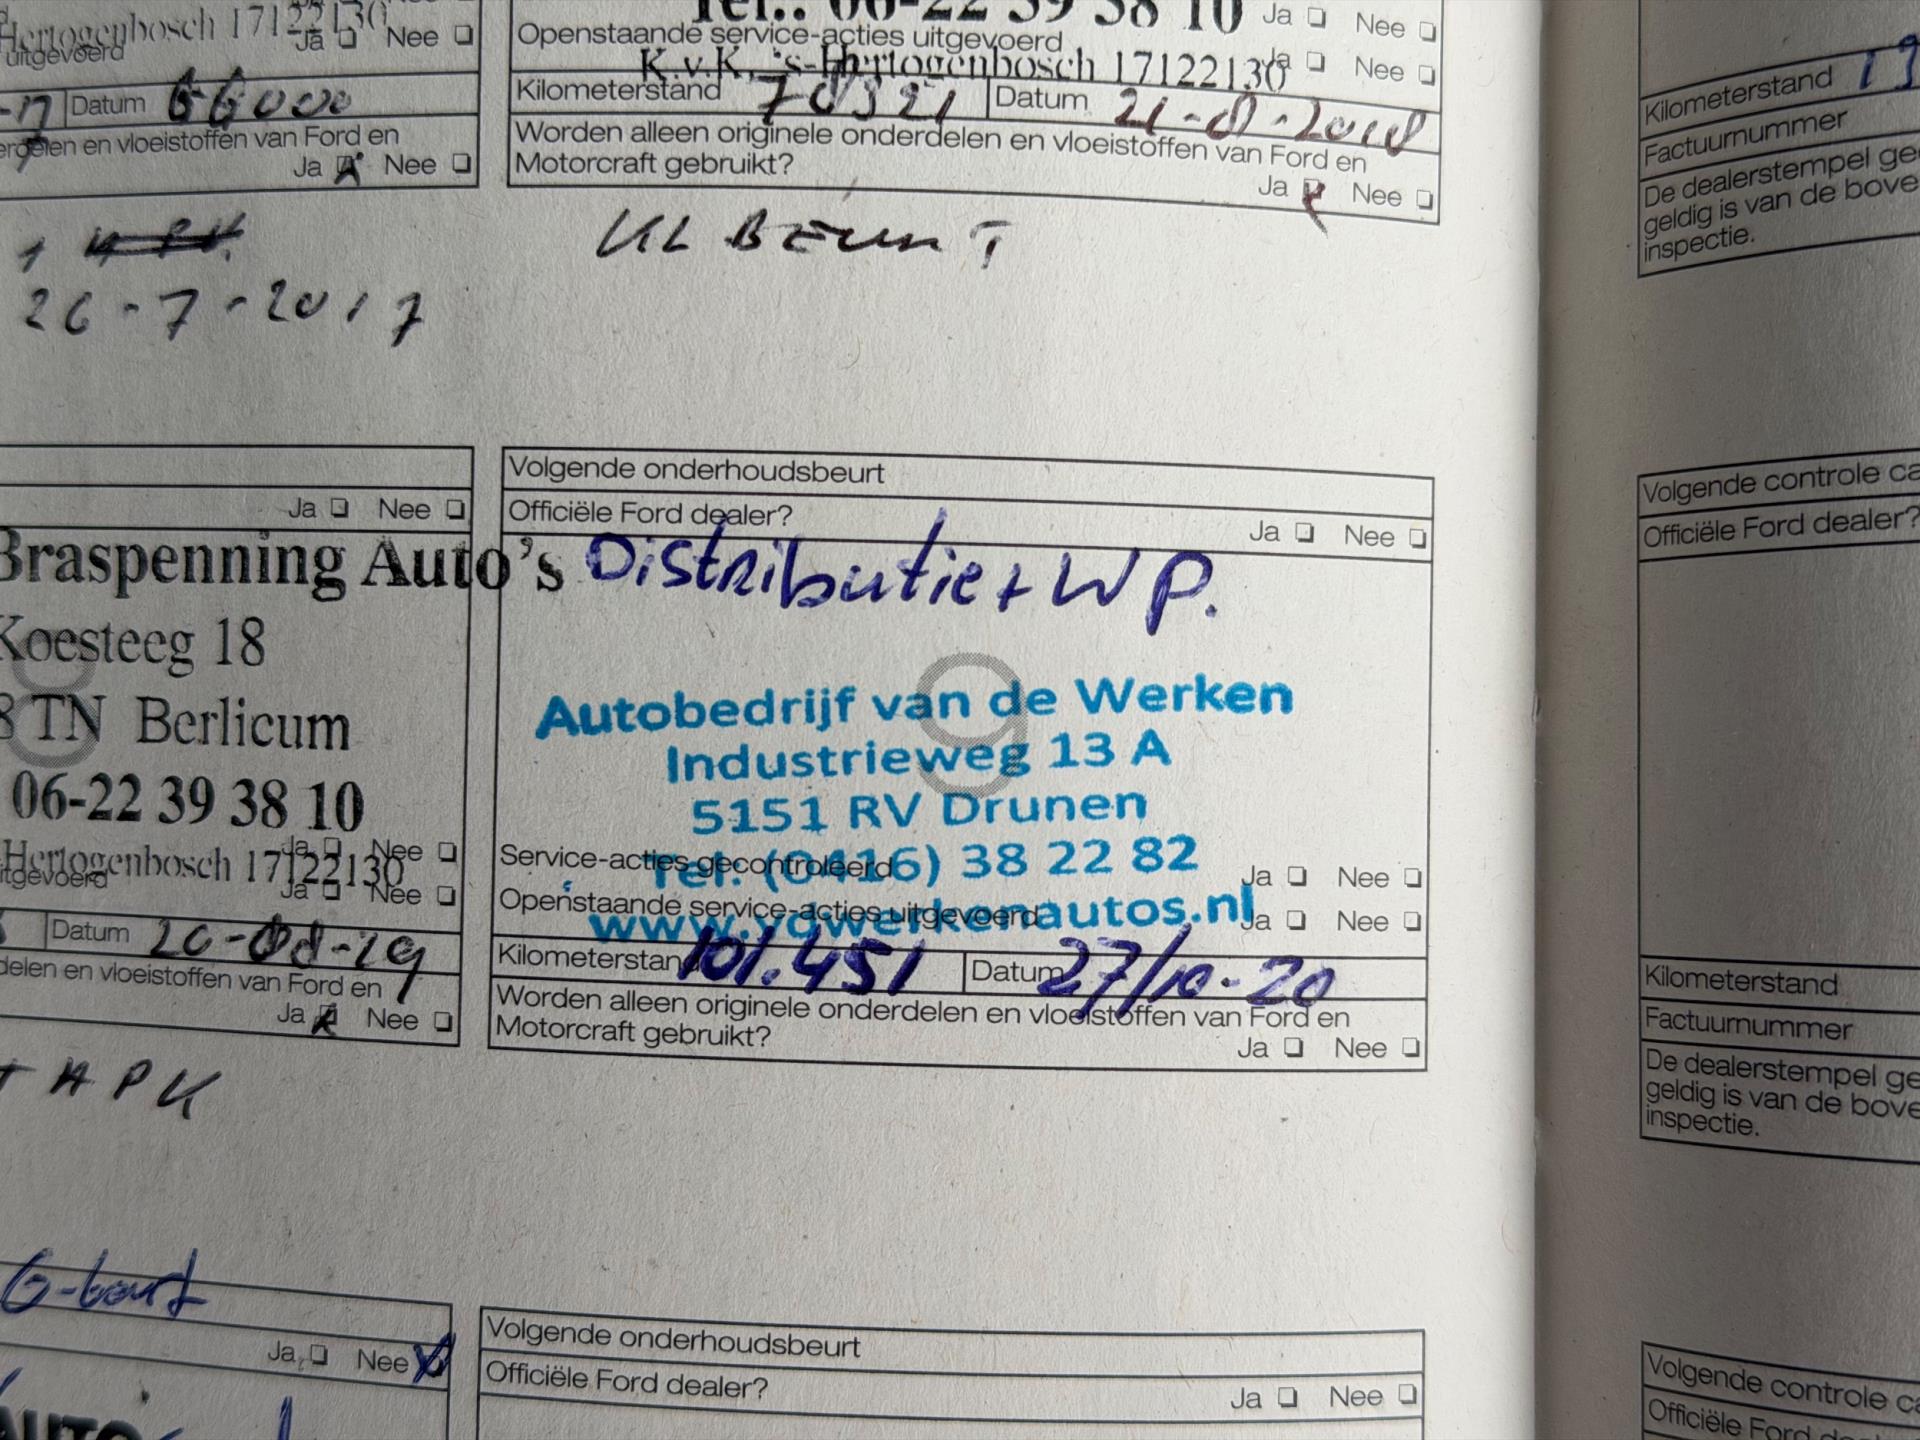 Hertogenbosch 17122130
Ja Nee
uitgevoerd
Datum 66000
en vloeistoffen van Ford en
Ja Nee
26-7-2017
Tel.: 06-22 39 38 10
Ja Nee
Openstaande service-acties uitgevoerd
K.v.K. 's-Hertogenbosch 17122130
Ja Nee
Kilometerstand Datum 21-8-2018
Worden alleen originele onderdelen en vloeistoffen van Ford en
Motorcraft gebruikt?
Ja Nee
KL BEURT
Ja Nee
Braspenning Auto's
Koesteeg 18
TN Berlicum
06-22 39 38 10
Ja Nee
Hertogenbosch 17122130
uitgevoerd
Ja Nee
Datum 20-08-19
en vloeistoffen van Ford en
Ja Nee
+ APK
Volgende onderhoudsbeurt
Officiële Ford dealer?
Ja Nee
Distributie + WP.
9
Autobedrijf van de Werken
Industrieweg 13 A
5151 RV Drunen
Service-acties gecontroleerd
Tel: (0416) 38 22 82
Ja Nee
Openstaande service-acties uitgevoerd
www.vdwerkenautos.nl
Ja Nee
Kilometerstand 101.451 Datum 27/10-20
Worden alleen originele onderdelen en vloeistoffen van Ford en
Motorcraft gebruikt?
Ja Nee
G-beurt
Ja Nee
AUTO
Volgende onderhoudsbeurt
Officiële Ford dealer?
Ja Nee
Kilometerstand
Factuurnummer
De dealerstempel
geldig is van de
inspectie.
Volgende controle
Officiële Ford dealer?
Kilometerstand
Factuurnummer
De dealerstempel
geldig is van de
inspectie.
Volgende controle
Officiële Ford dealer?